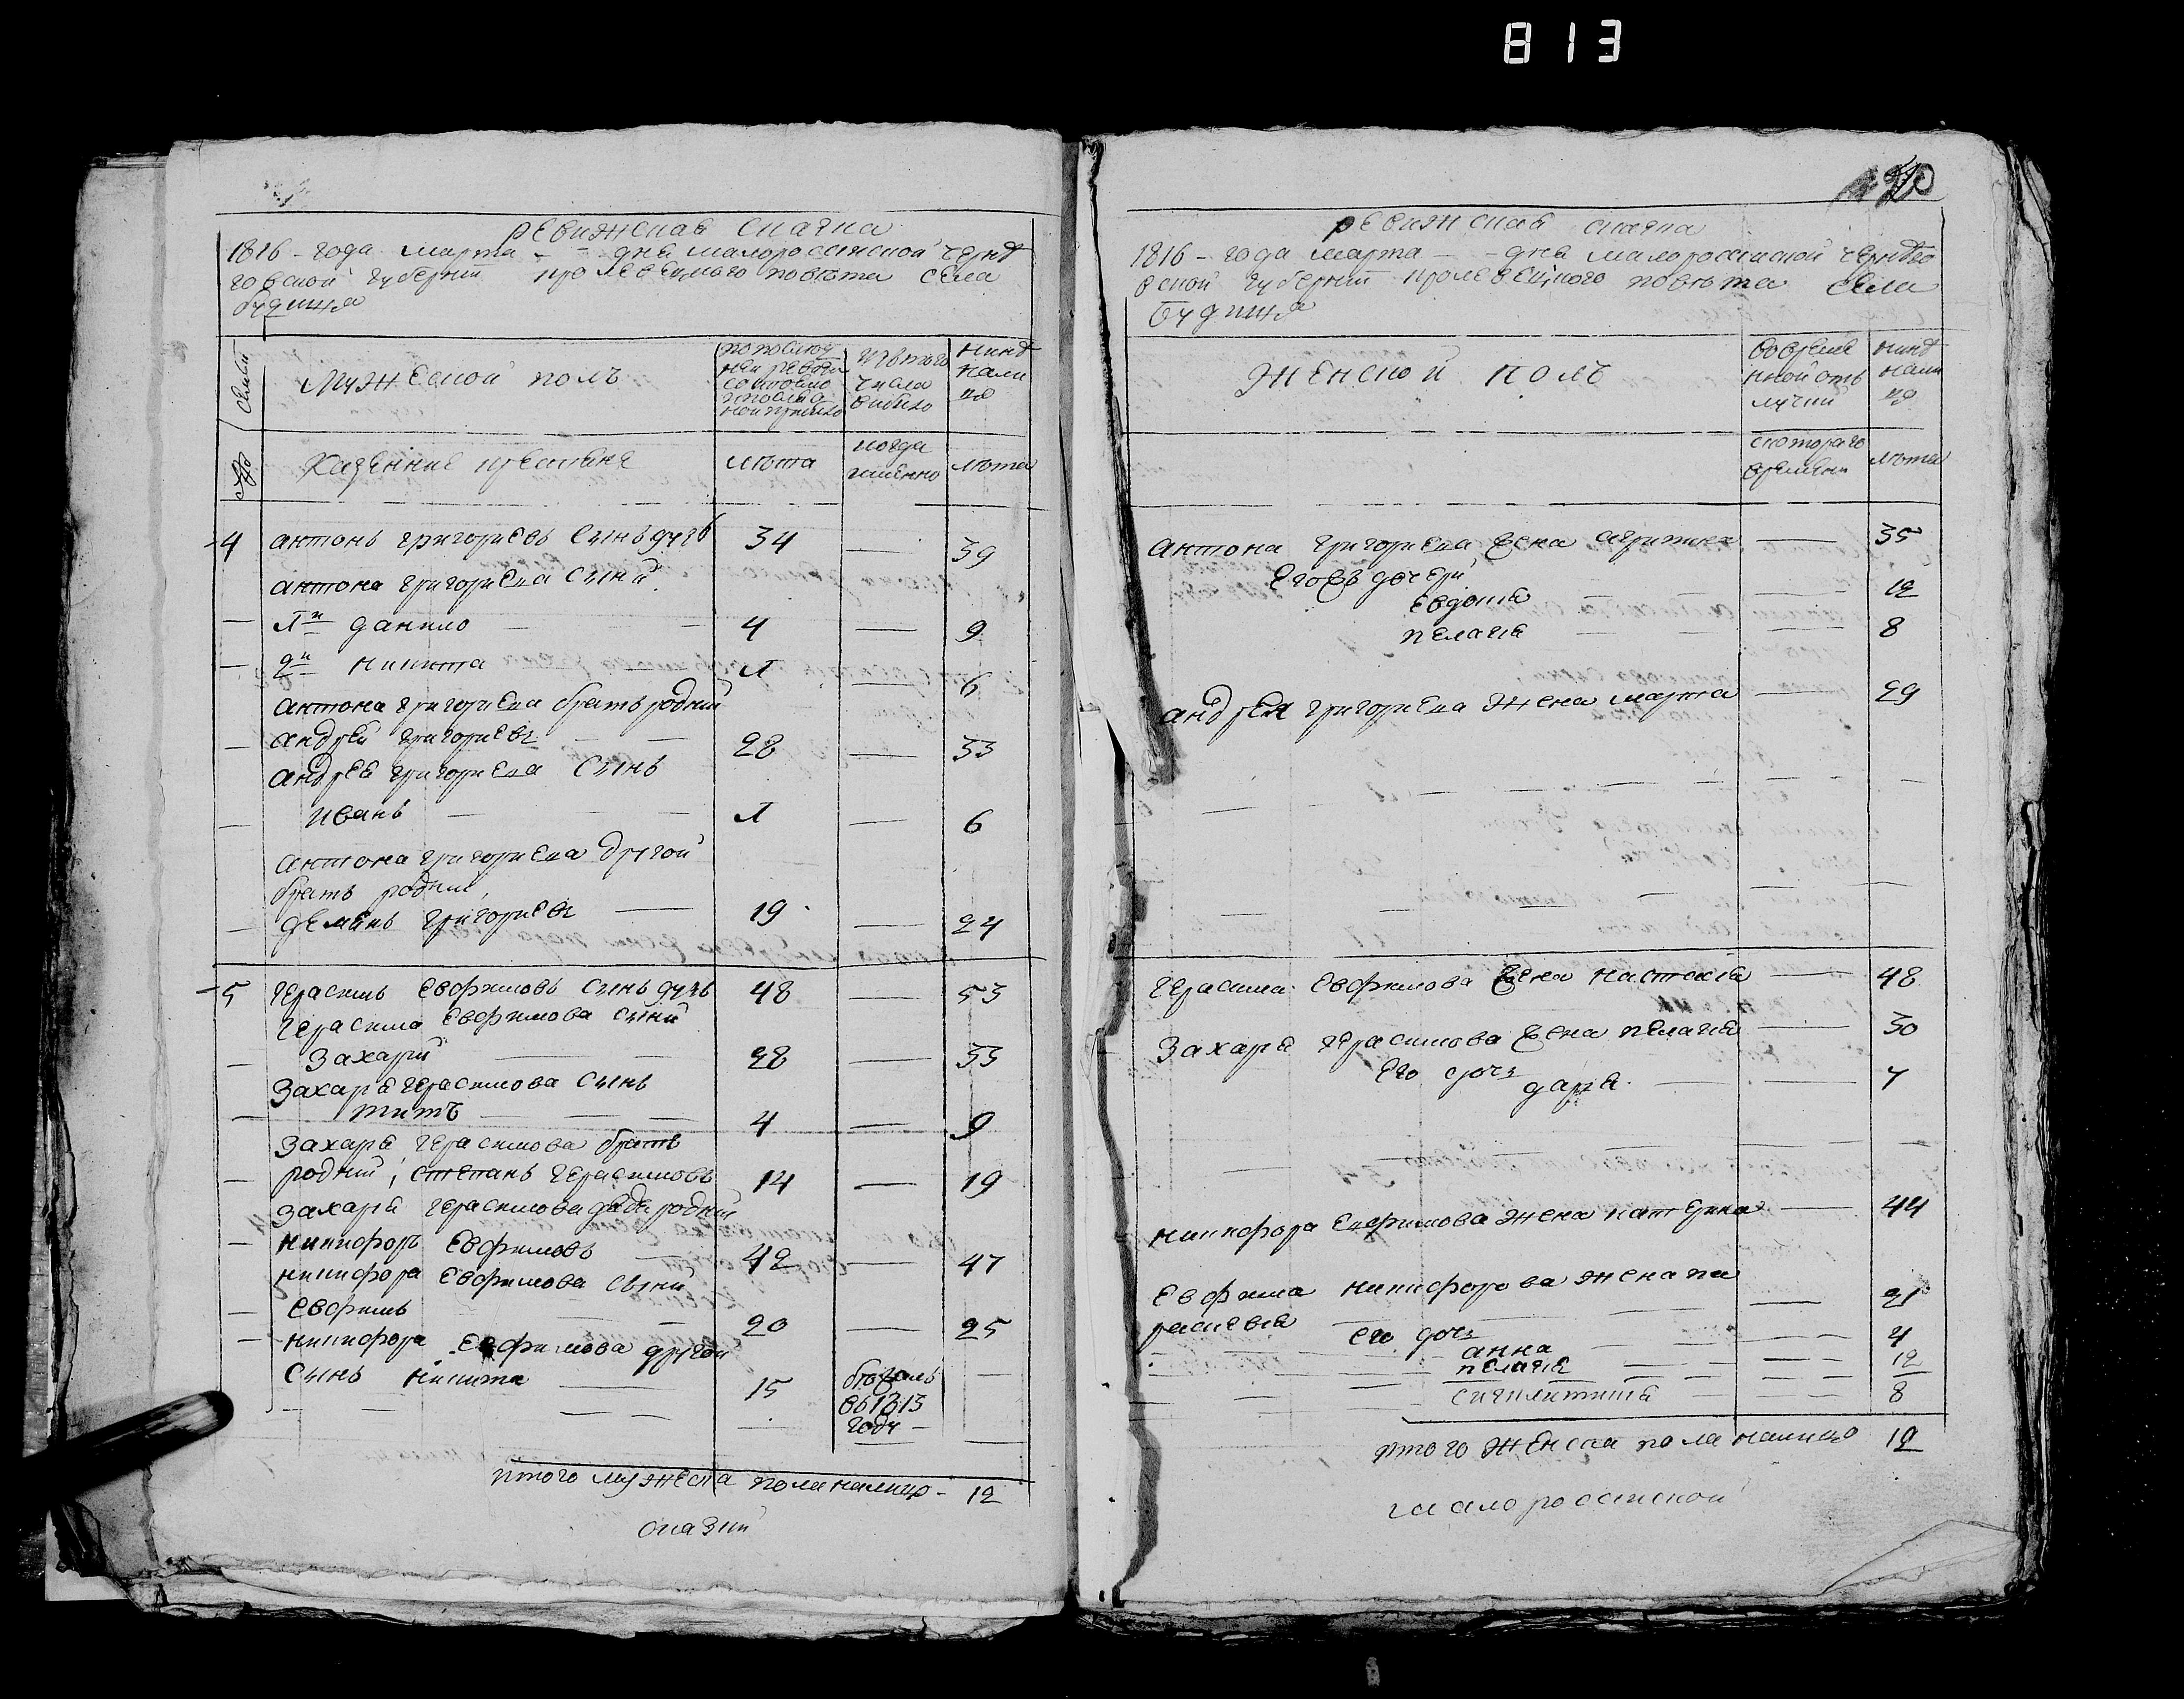 813
20
ревижская сказка
1816 - года марта - - дня малороссiйской черне
говской губернiи кролевецкого повѣта села
будища
семьи
мужеской полъ
по последней ревизiи состояло и после оной прибыло
изъ того числа выбыло
нине нали цо
№
казенние крестьяне
лѣта
когда именно
лѣта
4 антонъ григориевъ сынъ 34 — 39
антона григориева сыни
1й данило 4 — 9
2й никита 1 — 6
антона григориева братъ родний
андрей григориевъ 28 — 33
андрея григориева сынъ
иванъ 1 — 6
антона григориева другой
братъ родний,
демянъ григориевъ — 19 — 24
5 герасимъ евфимовъ сынъ 48 — 53
герасима евфимова сыни
захарий 28 — 33
захария герасимова сынъ
титъ 4 — 9
захария герасимова братъ
родний, степанъ герасимовъ 14 — 19
захария герасимова дядя родний
никифоръ евфимовъ — 42 — 47
никифора евфимова сыни
евфимъ 20 — 25
никифора евфимова другой
сынъ никита — 15
въ 1813
году
итого мужеска пола налицо - 12
ревижская сказка
1816 - года марта — - дня малороссiйской чернѣго
вской губернiи кролевецкого повѣта села
будища
женской полъ
во време
нной отъ
лучки
нине
нали
цо
скотораго
времени
лѣта
антона григориева жена — 35
его дочери
евдокия — 12
пелагия — 8
андрея григориева жена марта — 29
герасима евфимова жена настасия — 48
захария герасимова жена пелагия — 30
его дочь
дария — 7
никифора евфимова жена катерина — 44
евфима никифорова жена па
расковия — 21
его дочь
анна — 4
пелагия — 12
8
итого женска пола налицо 12
малороссiйской